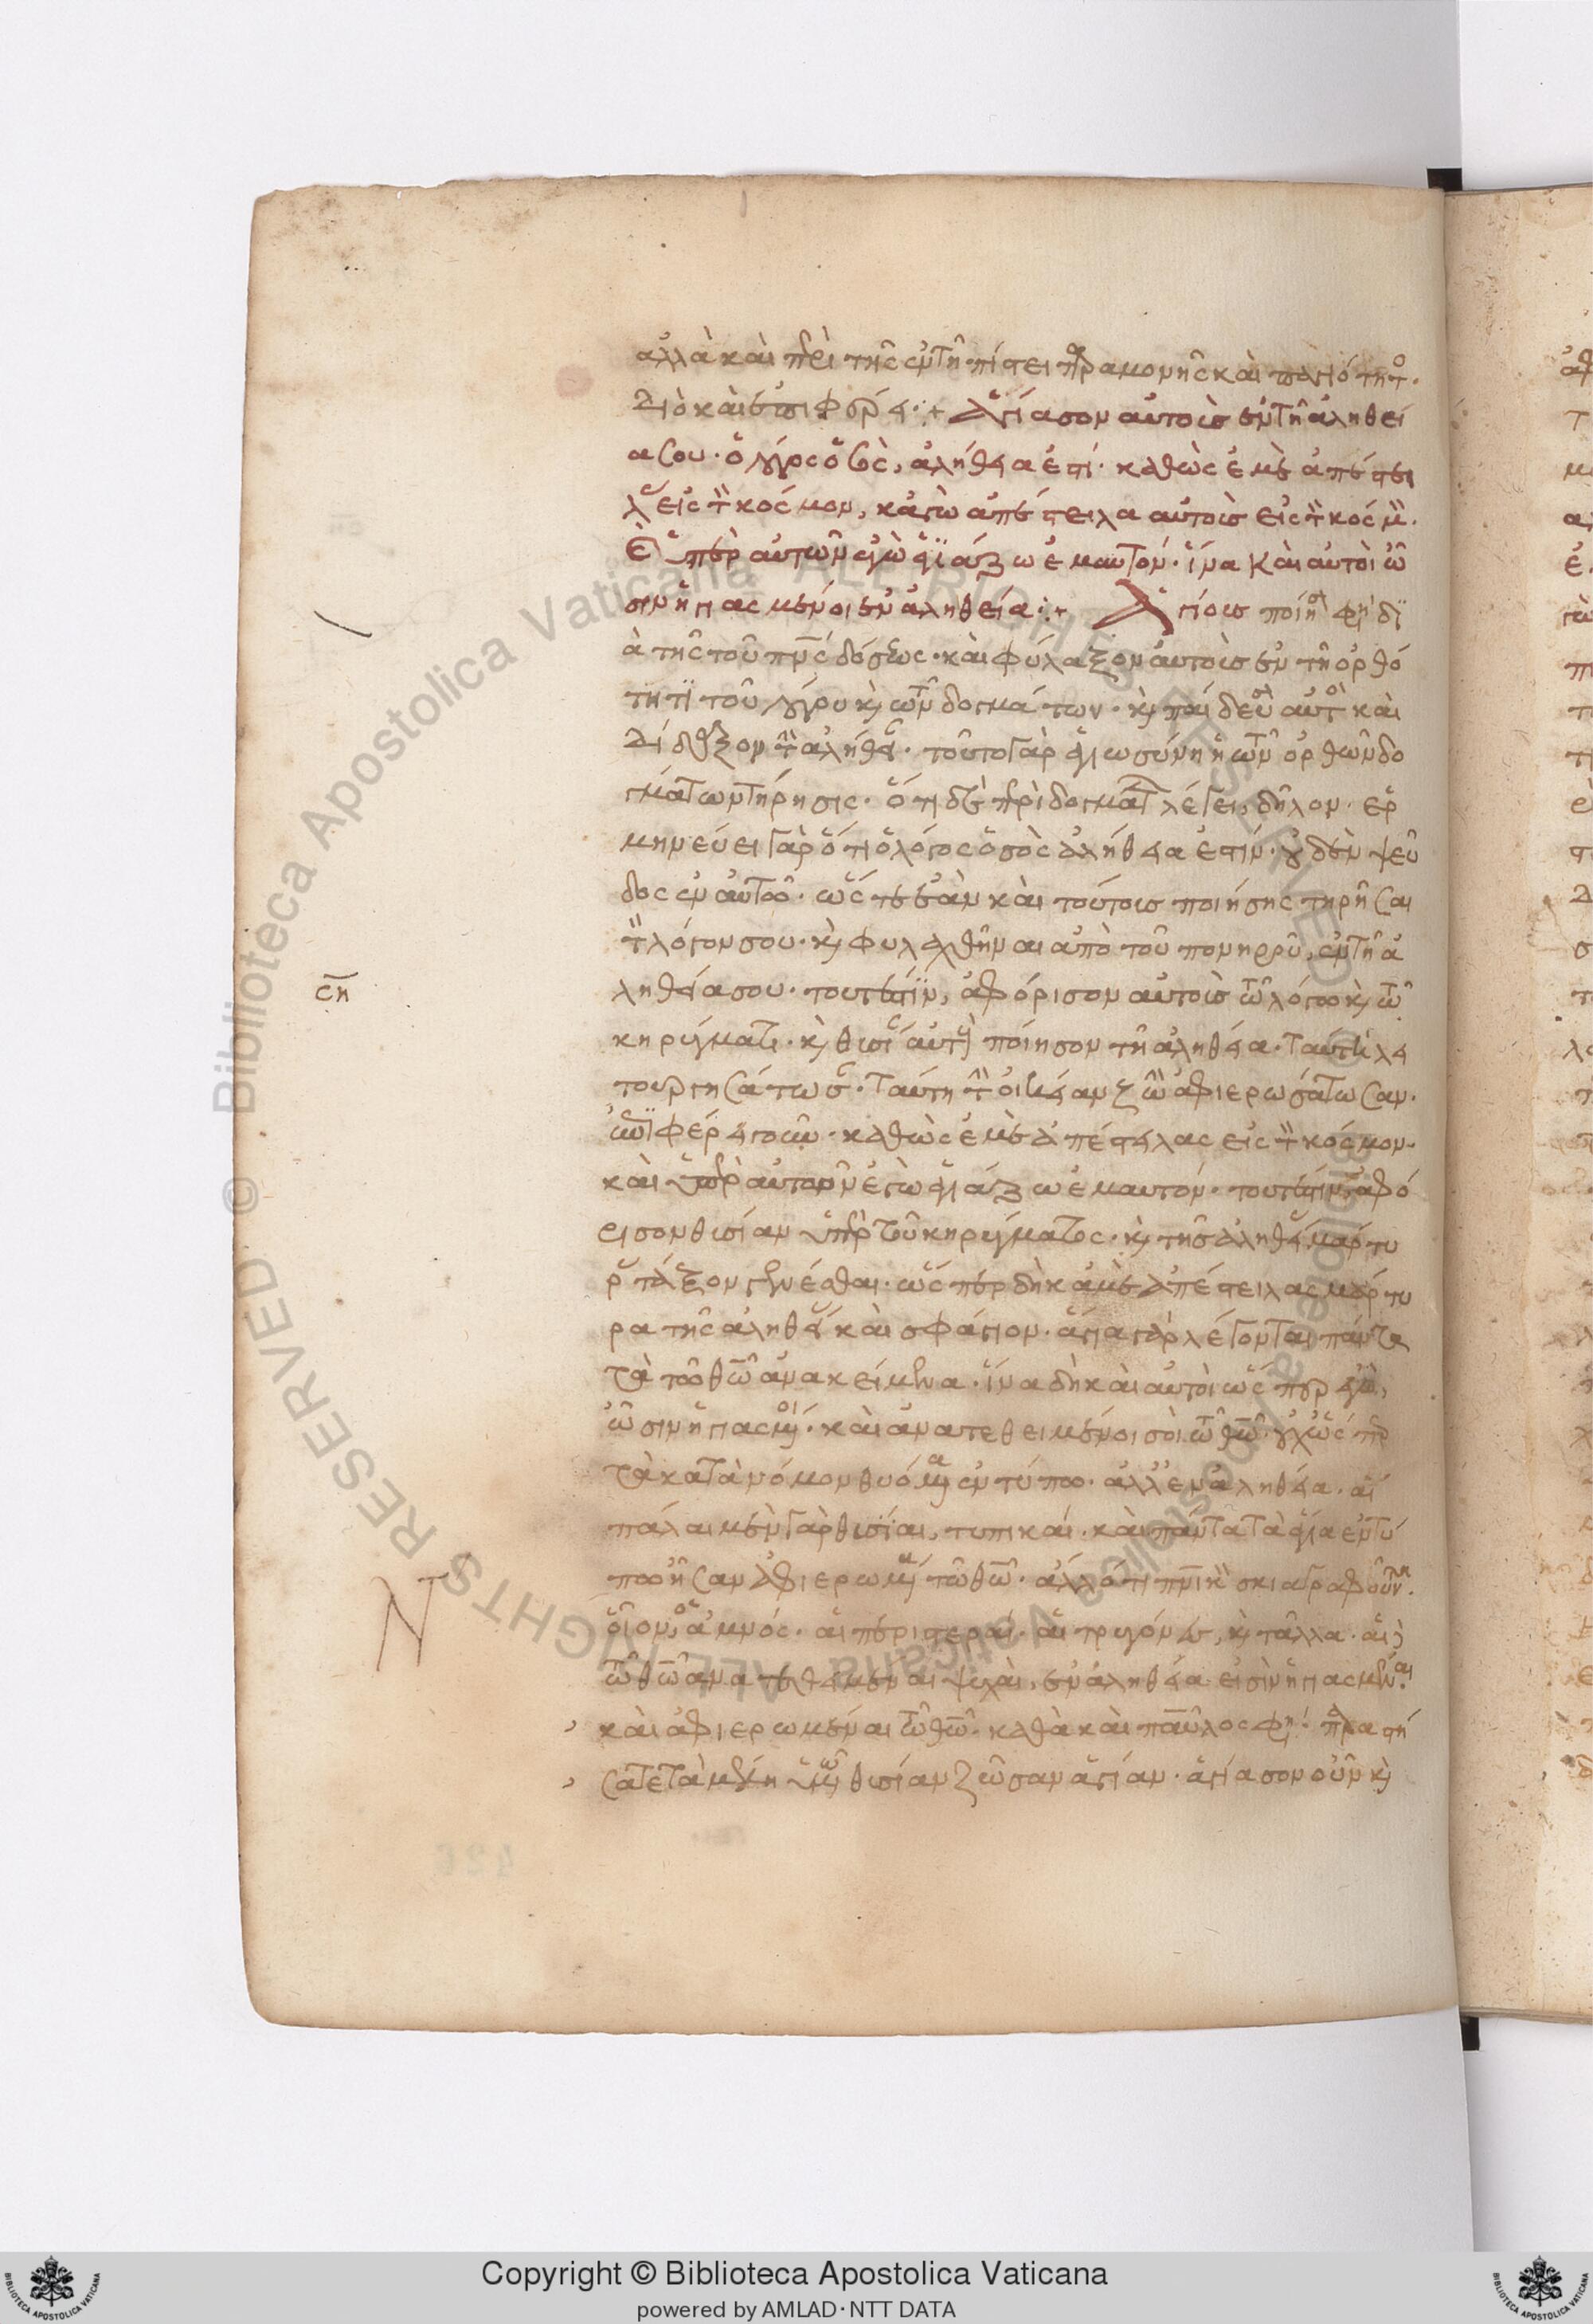 ἀλλὰ καὶ περὶ τῆς ἐν τῇ πίστει παραμονῆς καὶ
διὸ καὶ ἐπιφέρει· Ἁγίασον αὐτοὺς ἐν τῇ ἀληθεί
α σου· ὁ λόγος ὁ σὸς, ἀλήθεια ἐστί· καθὼς ἐμὲ ἀπέστει
λας εἰς τὸν κόσμον, κἀγὼ ἀπέστειλα αὐτοὺς εἰς τὸν κόσμον.
καὶ ὑπὲρ αὐτῶν ἐγὼ ἁγιάζω ἐμαυτόν· ἵνα καὶ αὐτοὶ ὦ
σιν ἡγιασμένοι ἐν ἀληθεία· Ἁγίους ποίησον φησὶ δι
ὰ τῆς τοῦ πνς δόσεως· καὶ φύλαξον αὐτοὺς ἐν τῇ ὀρθό
τητι τοῦ λόγου καὶ τῶν δογμάτων· καὶ παίδευσον αὐτοὺς καὶ
δίδαξον τὴν ἀλήθειαν· τοῦτο γὰρ ἁγιωσύνη ἡ τῶν ὀρθῶν δο
γμάτων τήρησις· ὅτι δὲ περὶ δογμάτων λέγει, δῆλον· ἑρ
μηνεύει γὰρ ὅτι ὁ λόγος ὁ σὸς ἀλήθεια ἐστίν· οὐδὲν ψεῦ
δος ἐν αὐτῷ· ὥστε ἐὰν καὶ τούτους ποιήσης τηρῆσαι
τὸν λόγον σου· καὶ φυλαχθῆναι ἀπὸ τοῦ πονηροῦ, ἐν τῇ ἀ
ληθεία σου· τουτέστιν, ἀφόρισον αὐτοὺς τῷ λόγῳ καὶ τῷ
κηρύγματι· καὶ θυσίαν αὐτοὺς ποίησον τῇ ἀληθεία· ταύτῃ λει
τουργησάτωσαν· ταύτῃ τὴν οἰκείαν ζωὴν ἀφιερωσάτωσαν·
ἐπιφέρει γοῦν· καθὼς ἐμὲ ἀπέστειλας εἰς τὸν κόσμον·
καὶ ὑπὲρ αὐτῶν ἐγὼ ἁγιάζω ἐμαυτόν· τουτέστιν, ἀφό
ρισον θυσίαν ὑπὲρ τοῦ κηρύγματος· καὶ τῆς ἀληθείας μάρτυ
ρας τάξον γενέσθαι· ὥσπερ δὴ κἀμὲ ἀπέστειλας μάρτυ
ρα τῆς ἀληθείας καὶ σφάγιον· ἅγια γὰρ λέγονται πάντα
τὰ τῷ θῶ ἀνακείμενα· ἵνα δὴ καὶ αὐτοὶ ὥσπερ ἐγὼ,
ὦσιν ἡγιασμένοι· καὶ ἀνατεθειμένοι σοὶ τῷ θῶ· οὐχ ὥσπερ
τὰ κατὰ νόμον θυόμενα ἐν τύπῳ· ἀλλ' ἐν ἀληθεία· αἱ
πάλαι μὲν γὰρ θυσίαι, τυπικαί· καὶ πάντα τὰ ἅγια ἐν τύ
πῳ ἦσαν ἀφιερωμένα τῷ θῶ· ἄλλό τι πνικὸν σκιαγραφοῦντα·
οἷον, ὁ ἀμνός· αἱ περιστεραί· αἱ τρυγόνες, καὶ τἄλλα· αἱ δὲ
τῷ θῶ ἀνατεθειμέναι ψυχαὶ, ἐν ἀληθεία εἰσὶν ἡγιασμέναι·
καὶ ἀφιερωμέναι τῷ θῶ· καθὰ καὶ παῦλος φησί· παραστή
σατε τὰ μέλη ὑμῶν θυσίαν ζῶσαν ἁγίαν· ἁγίασον οὖν καὶ
ση
N
© Biblioteca Apostolica Vaticana ALL RIGHTS RESERVED
Copyright © Biblioteca Apostolica Vaticana
powered by AMLAD·NTT DATA